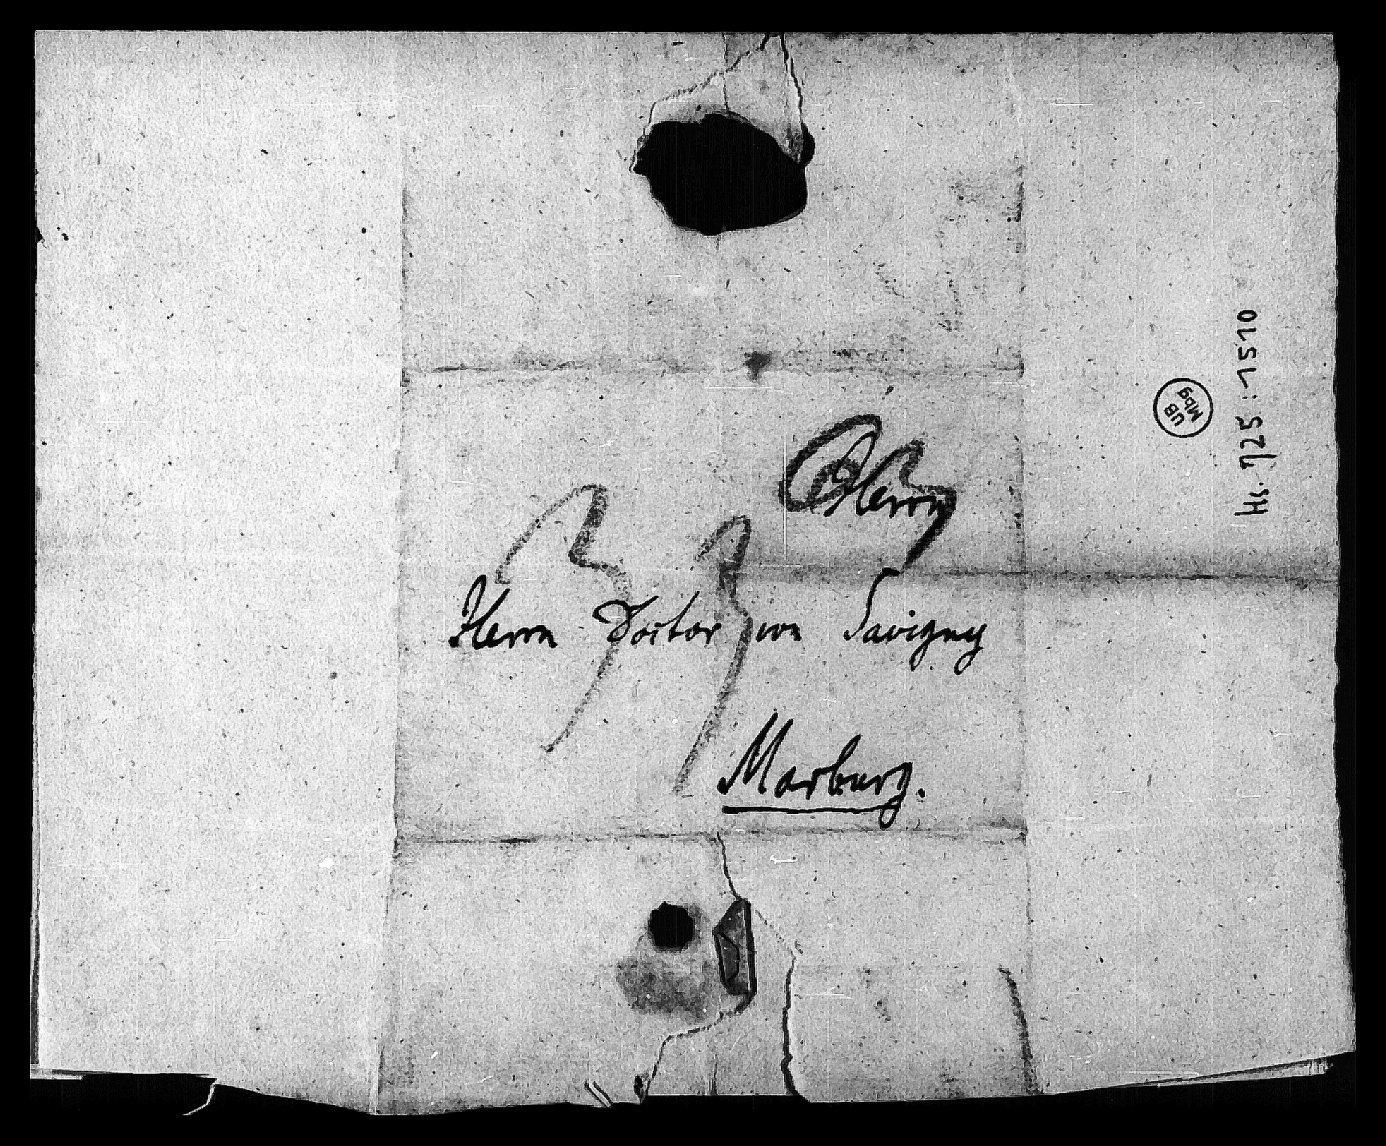 Herrn
Herrn Doctor von Savigny
Marburg.
Hs. 725 : 1510
UB
Mbg